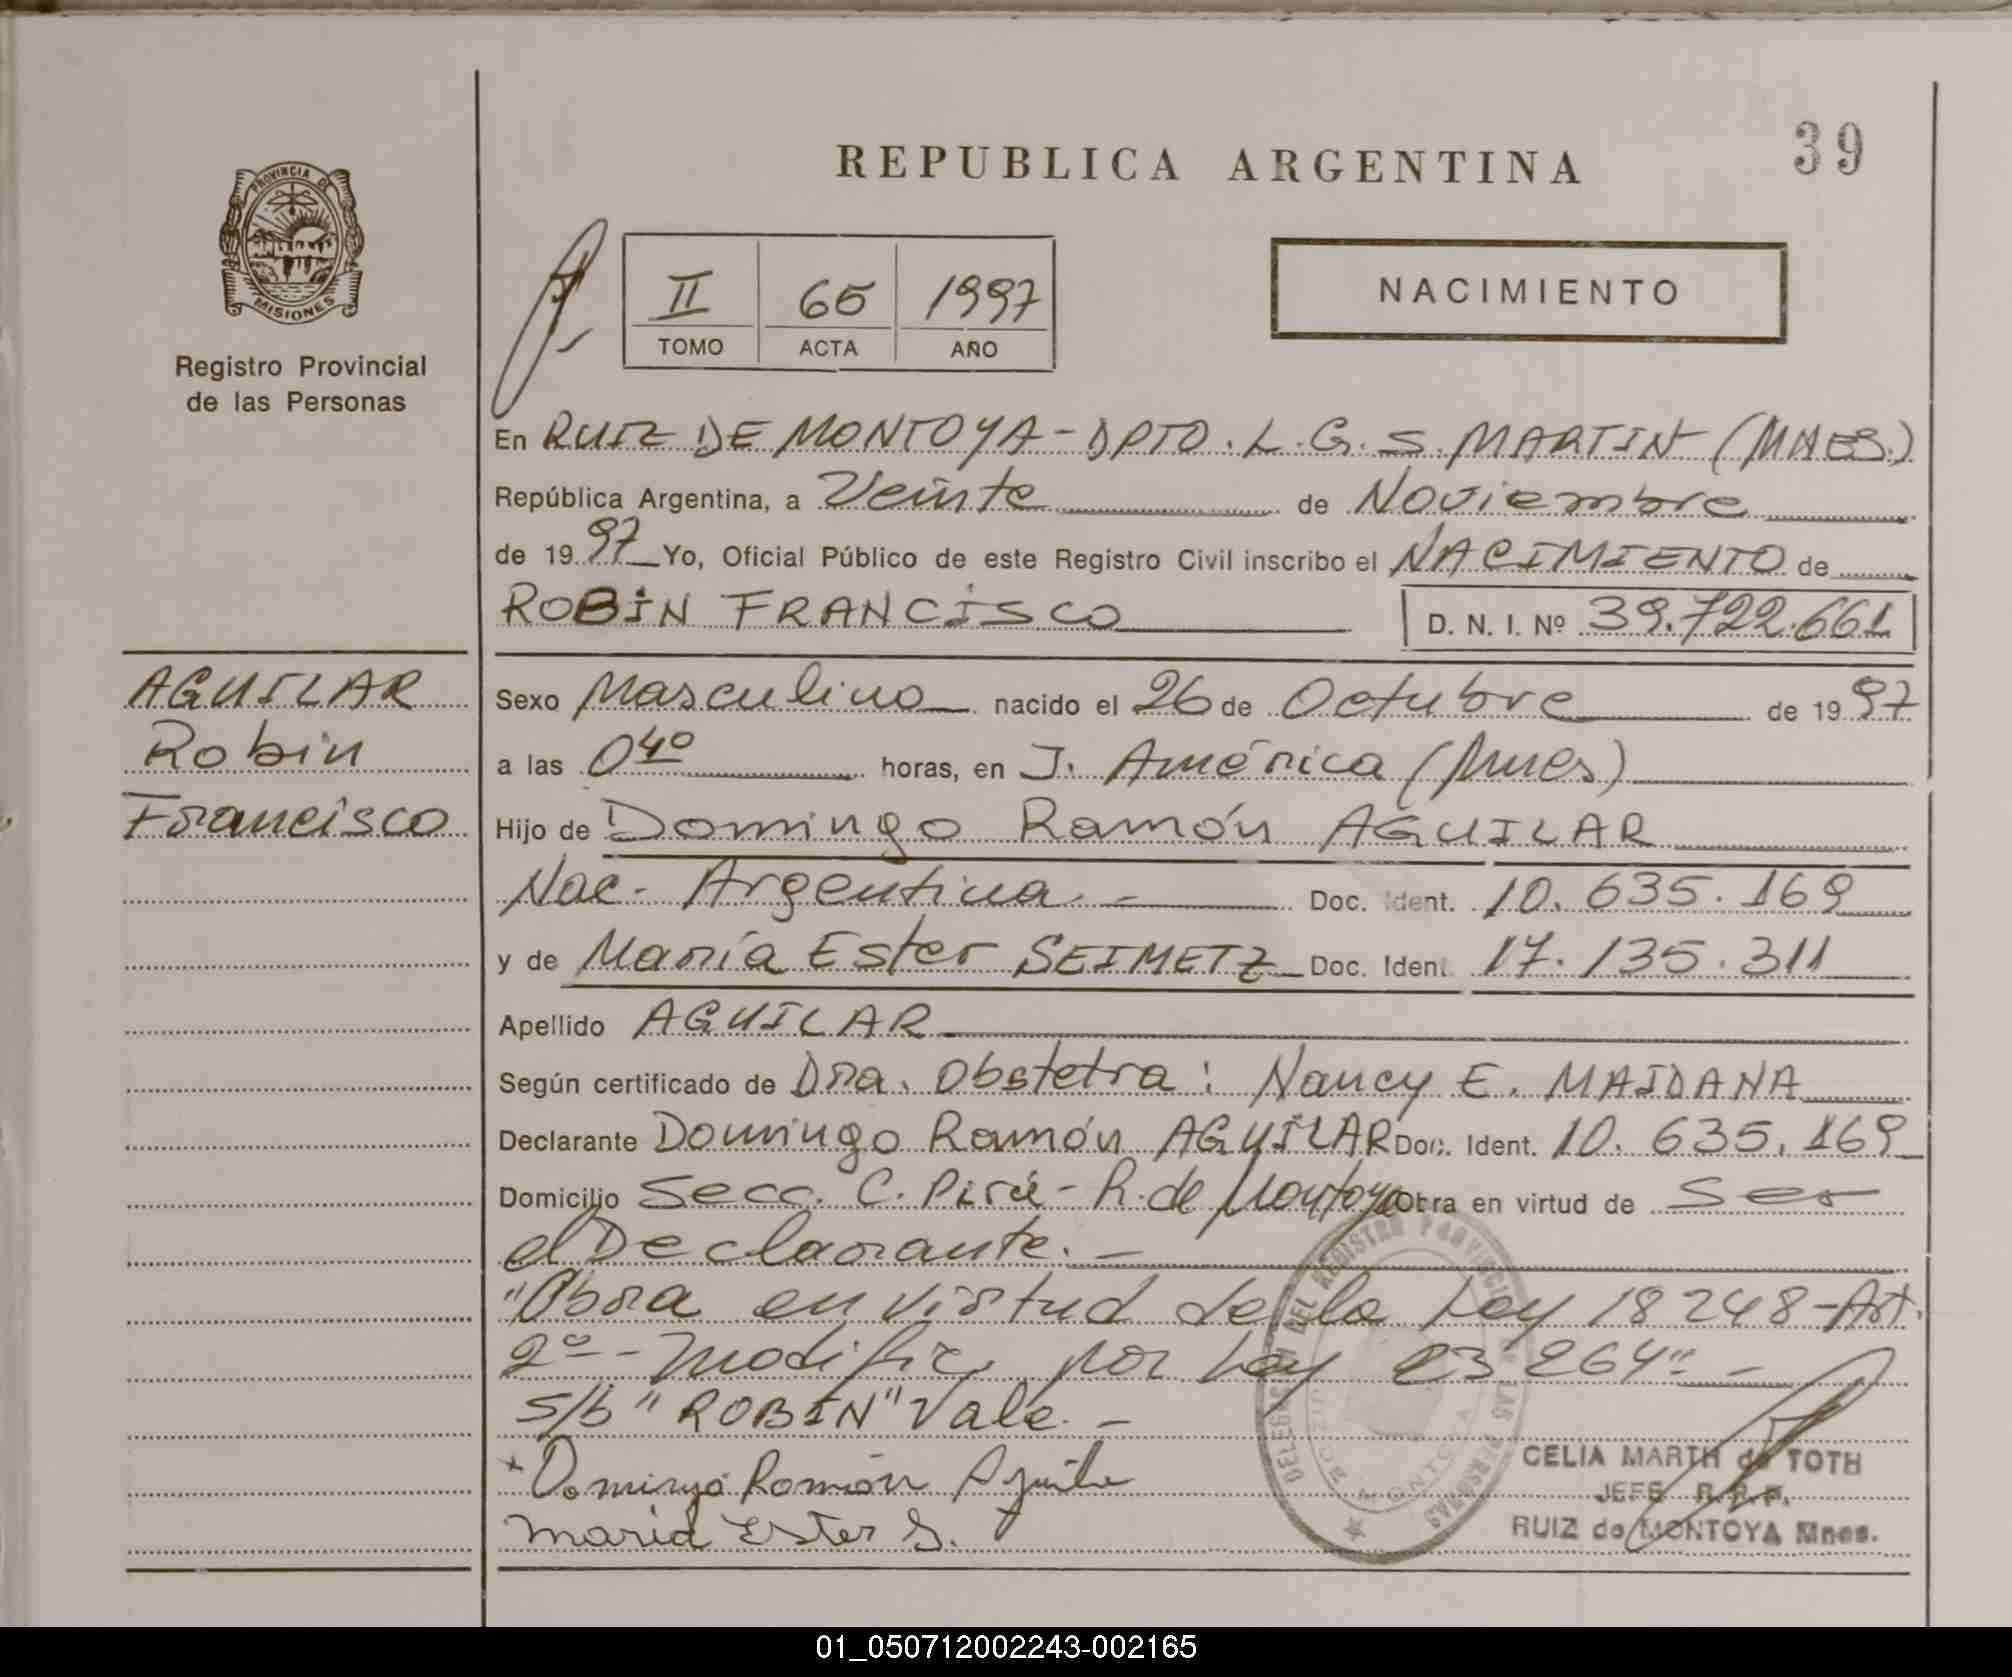 REPUBLICA ARGENTINA
39
PROVINCIA DE
MISIONES
Registro Provincial
de las Personas
II 65 1997
TOMO ACTA AÑO
NACIMIENTO
En RUIZ DE MONTOYA - DPTO. L. G. S. MARTIN (MNES.)
República Argentina, a Veinte de Noviembre
de 1997 Yo, Oficial Público de este Registro Civil inscribo el NACIMIENTO de
ROBIN FRANCISCO D. N. I. Nº 39.722.661
AGUILAR
Robin
Francisco
Sexo Masculino nacido el 26 de Octubre de 1997
a las 04º horas, en J. América (Mnes)
Hijo de Domingo Ramón AGUILAR
Nac. Argentina. - Doc. Ident. 10.635.169
y de María Ester SEIMETZ Doc. Ident. 17.135.311
Apellido AGUILAR
Según certificado de Dra. Obstetra: Nancy E. MAIDANA
Declarante Domingo Ramón AGUILAR Doc. Ident. 10.635.169
Domicilio Secc. C. Pirú - R. de Montoya Obra en virtud de Ser
el Declarante. -
"Obra en virtud de la Ley 18248 - Art.
2º - Modific. por Ley 23264" -
S/b "ROBIN" Vale. -
Domingo Ramón Aguilar
Maria Ester S.
DELEGACION DEL REGISTRO PROVINCIAL DE LAS PERSONAS
CELIA MARTH de TOTH
JEFE R.P.P.
RUIZ de MONTOYA Mnes.
01_050712002243-002165